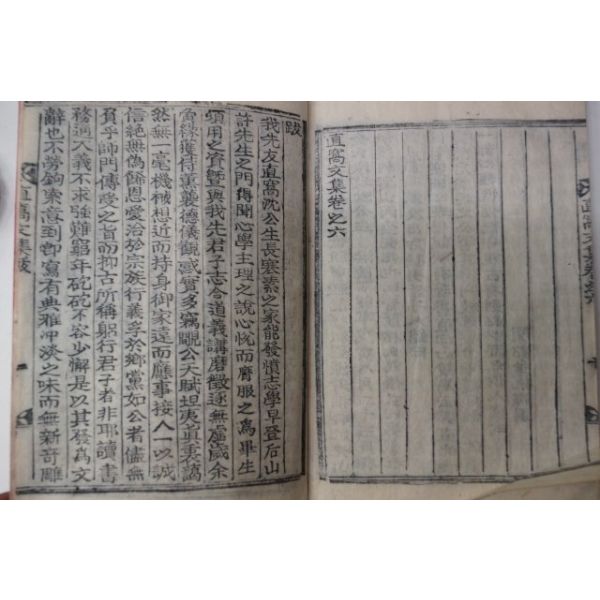 直窩文集卷之六
直窩文集卷之六
跋
我先友直窩沈公生長寒素之家能發憤志學早登后山
許先生之門得聞心學主理之說心悅而膺服之爲畢生
須用之資曁與我先君子志合道義講磨徵逐無虛歲余
獲侍薰襲德儀觀感實多竊覸公天賦坦夷眞秉謁
然無一毫機械想近而持身御家遠而應事接人一以誠
信絶無僞餙恩愛洽於宗族行義孚於鄕黨如公者儘無
負乎師門傳受之旨而抑古所稱躬行君子者非耶讀書
務適入義不求強難窮年矻矻不容少懈是以其發爲文
辭也不勞鉤索意到卽寫有典雅冲淡之味而無新奇雕
直窩文集跋
一